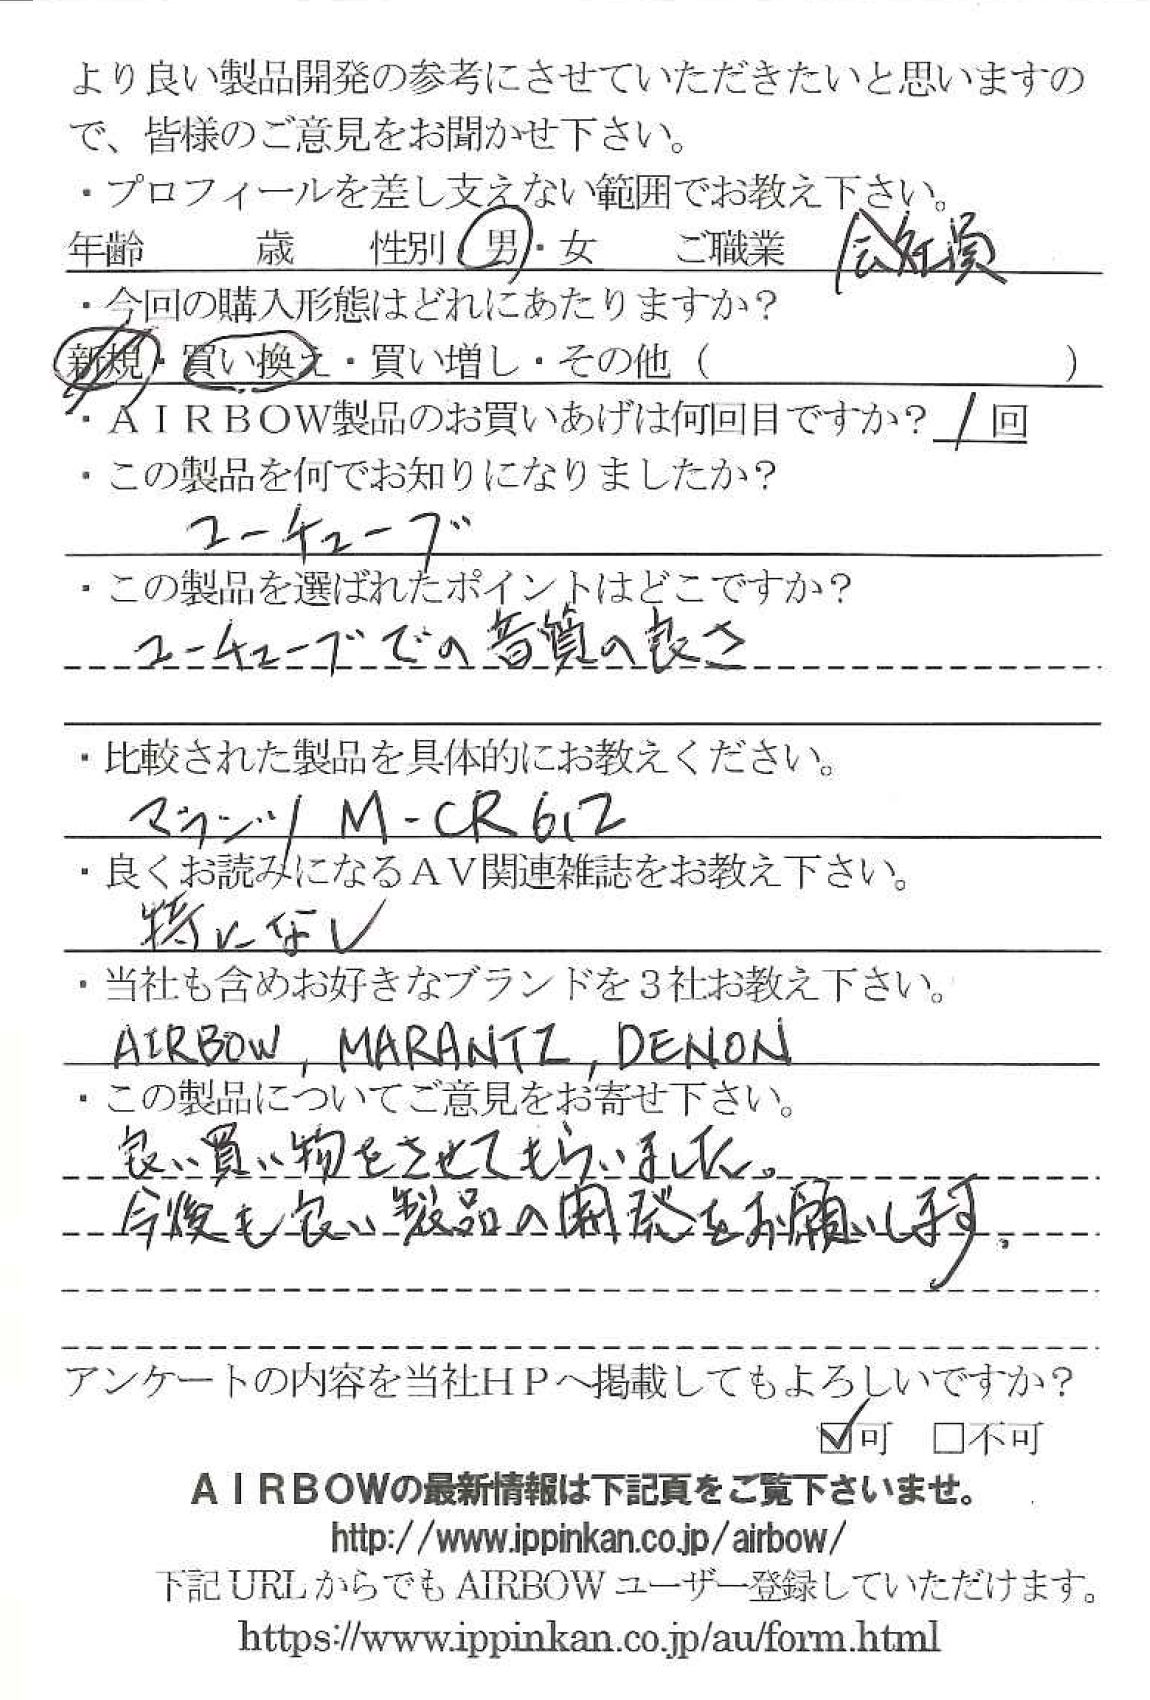 より良い製品開発の参考にさせていただきたいと思いますの
で、皆様のご意見をお聞かせ下さい。
・プロフィールを差し支えない範囲でお教え下さい。
年齢　　　歳　　性別　男・女　　ご職業　会社員
・今回の購入形態はどれにあたりますか？
新規・買い換え・買い増し・その他（　　　　　　　　　）
・ＡＩＲＢＯＷ製品のお買いあげは何回目ですか？ 1 回
・この製品を何でお知りになりましたか？
ユーチューブ
・この製品を選ばれたポイントはどこですか？
ユーチューブでの音質の良さ
・比較された製品を具体的にお教えください。
マランツ M-CR612
・良くお読みになるＡＶ関連雑誌をお教え下さい。
特になし
・当社も含めお好きなブランドを３社お教え下さい。
AIRBOW, MARANTZ, DENON
・この製品についてご意見をお寄せ下さい。
良い買い物をさせてもらいました。
今後も良い製品の開発をお願いします。
アンケートの内容を当社ＨＰへ掲載してもよろしいですか？
☑可　□不可
ＡＩＲＢＯＷの最新情報は下記頁をご覧下さいませ。
http://www.ippinkan.co.jp/airbow/
下記 URL からでも AIRBOW ユーザー登録していただけます。
https://www.ippinkan.co.jp/au/form.html